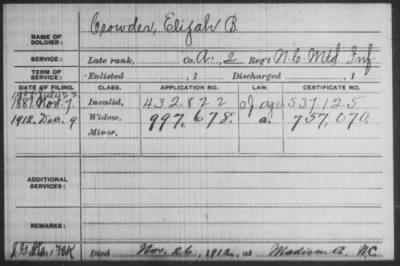 NAME OF SOLDIER: Crowder, Elijah B.
SERVICE: Late rank, Co. A, 2 Reg't N.C. Mtd. Inf.
TERM OF SERVICE: Enlisted , 1 Discharged , 1
DATE OF FILING. CLASS. APPLICATION NO. LAW. CERTIFICATE NO.
1881 Nov. 7 Invalid, 432.822 537.125
1912 Dec. 9 Widow, 997.678. a. 757.070.
Minor,
ADDITIONAL SERVICES:
REMARKS:
Died Nov. 26, 1912, at Madison Co. N.C.